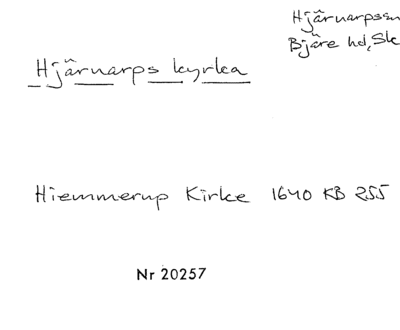 Hjärnarpssn
Bjäre hd, Sk
Hjärnarps kyrka
Hiemmerup Kirke 1640 KB 255
Nr 20257